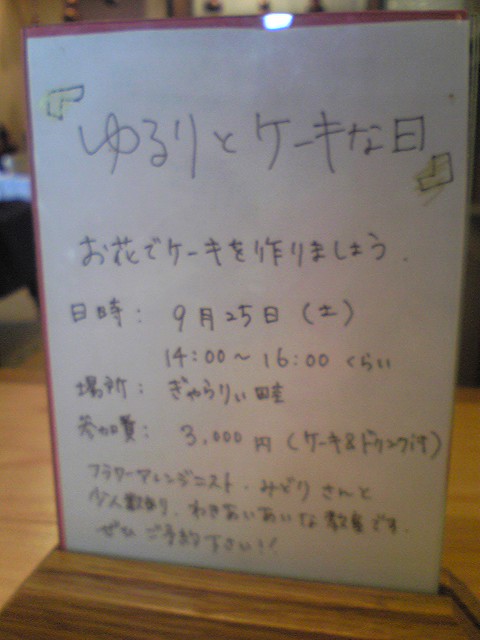 「ゆるりとケーキな日」
お花でケーキを作りましょう.
日時: 9月25日(土)
14:00〜16:00 くらい
場所: ぎゃらりぃ 畦
参加費: 3,000円 (ケーキ&ドリンク付)
フラワーアレンジニスト・みどりさんと
少人数制り、わきあいあいな教室です.
ぜひ ご予約下さい!!